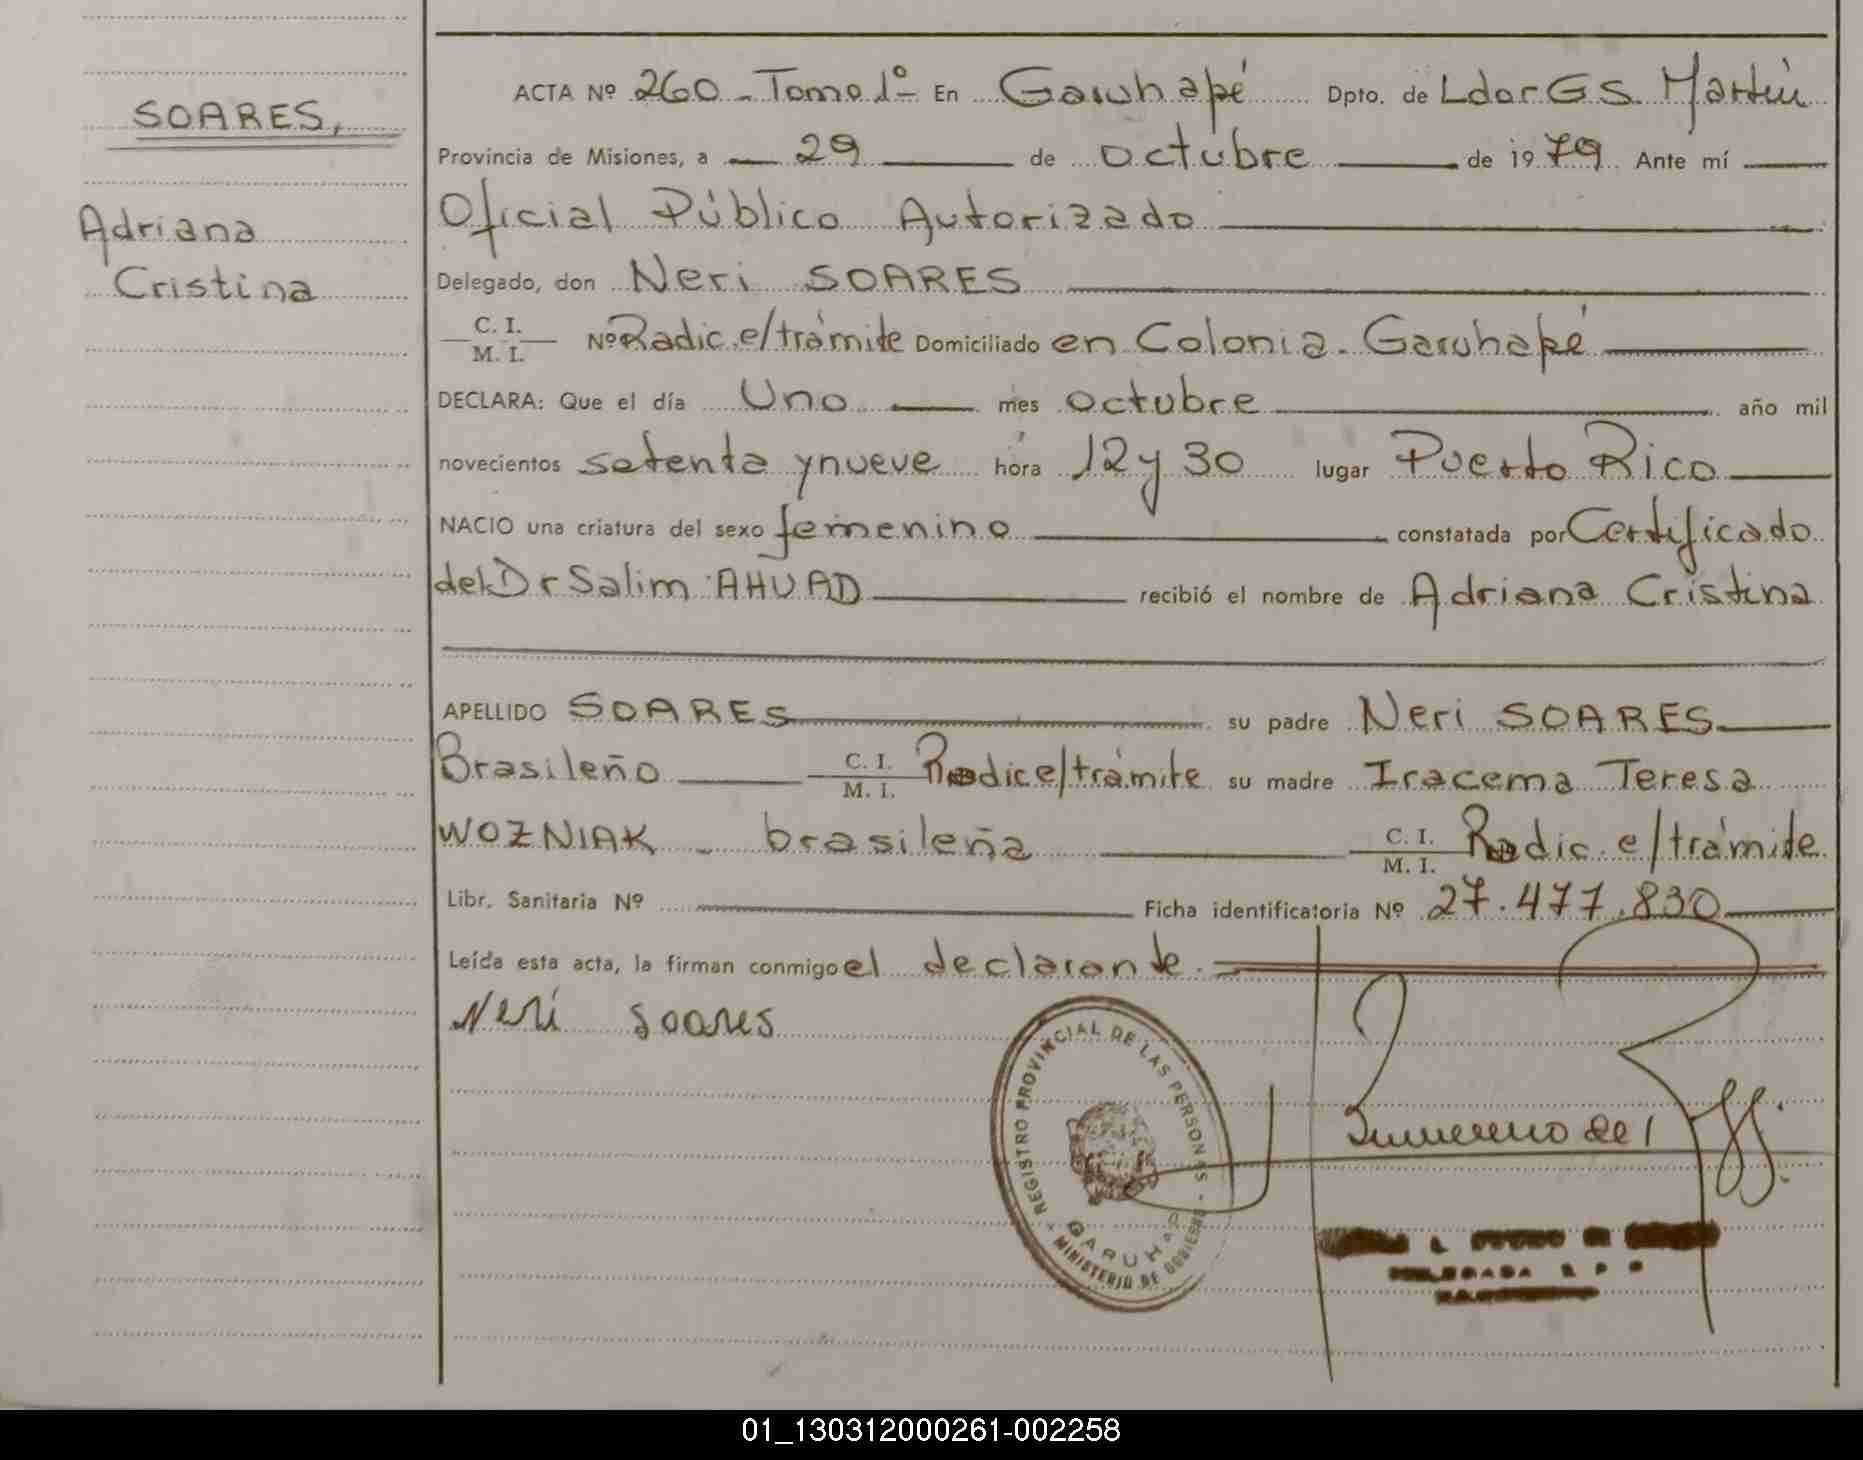 SOARES,
Adriana
Cristina
ACTA Nº 260 - Tomo 1º - En Garuhapé Dpto. de Ldor G S. Martín
Provincia de Misiones, a 29 de octubre de 1979 Ante mí
Oficial Público Autorizado
Delegado, don Neri SOARES
C. I.
M. I.
Nº Radic. e/trámite Domiciliado en Colonia - Garuhapé
DECLARA: Que el día Uno mes octubre año mil
novecientos setenta y nueve hora 12 y 30 lugar Puerto Rico
NACIO una criatura del sexo femenino constatada por Certificado
del Dr Salim AHUAD recibió el nombre de Adriana Cristina
APELLIDO SOARES su padre Neri SOARES
Brasileño C. I. M. I. Radic e/trámite su madre Iracema Teresa
WOZNIAK - brasileña C. I. M. I. Radic. e/trámite
Libr. Sanitaria Nº Ficha identificatoria Nº 27.477.830
Leída esta acta, la firman conmigo el declarante.
Neri Soares
REGISTRO PROVINCIAL DE LAS PERSONAS - MINISTERIO DE GOBIERNO -
GARUHAP
DELEGADA R P
01_130312000261-002258